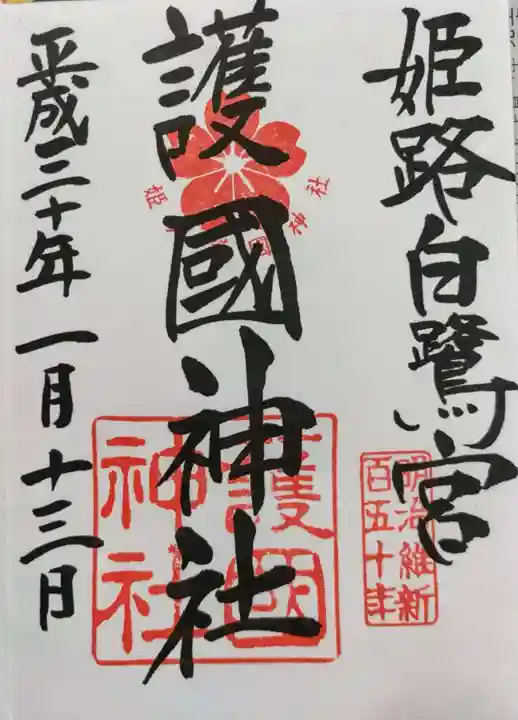 姫路白鷺宮
明治維新
百五十年
護國神社
護國
神社
平成三十年一月十三日